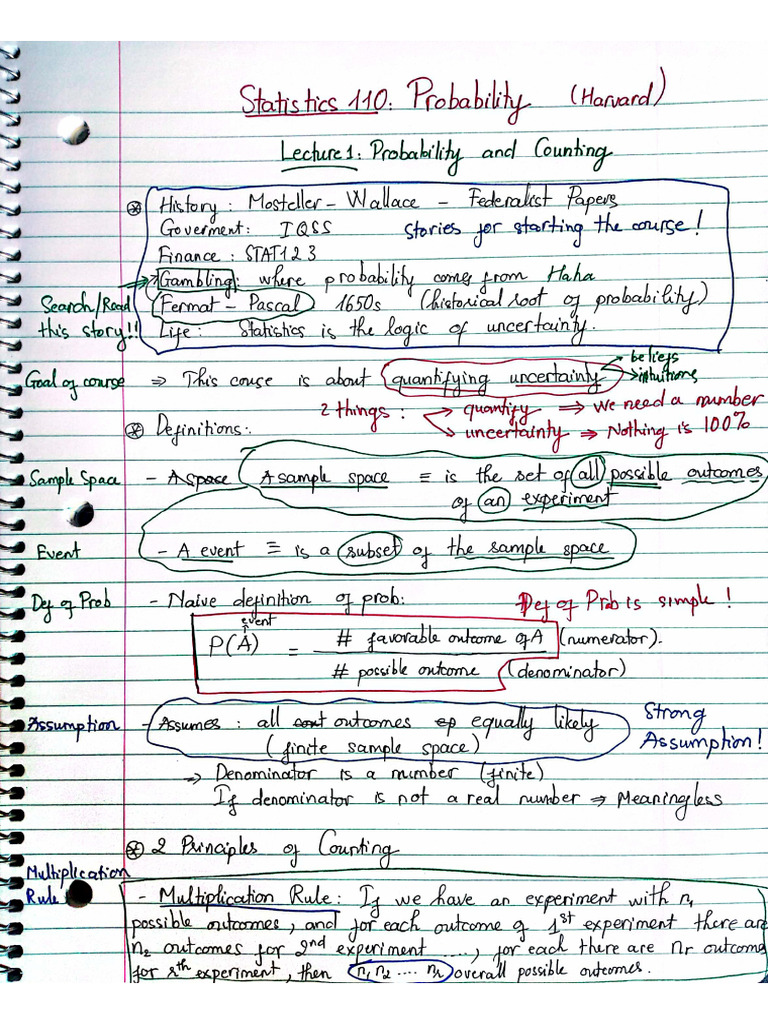 Statistics 110: Probability (Harvard)
Lecture 1: Probability and Counting
⊛ History: Mosteller - Wallace - Federalist Papers
Goverment: IQSS stories for starting the course!
Finance: STAT123
Gambling: where probability comes from Haha
Search/Read this story!!
Fermat - Pascal 1650s (historical root of probability)
Life: Statistics is the logic of uncertainty.
Goal of course ⇒ This couse is about quantifying uncertainty → beliefs → intuitions
2 things: → quantify ⇒ We need a number
→ uncertainty ⇒ Nothing is 100%
⊛ Definitions:
Sample Space - A space A sample space ≡ is the set of all possible outcomes
of an experiment
Event - A event ≡ is a subset of the sample space
Def of Prob - Naive definition of prob: Def of Prob is simple!
event
P(A) = # favorable outcome of A (numerator).
# possible outcome (denominator)
Assumption - Assumes: all out outcomes ep equally likely
(finite sample space)
Strong Assumption!
→ Denominator is a number (finite)
If denominator is not a real number ⇒ Meaningless
⊛ 2 Principles of Counting
Multiplication Rule
- Multiplication Rule: If we have an experiment with n₁
possible outcomes, and for each outcome of 1st experiment there are
n₂ outcomes for 2nd experiment ....., for each there are nr outcome
for rth experiment, then n₁ n₂ .... nr overall possible outcomes.